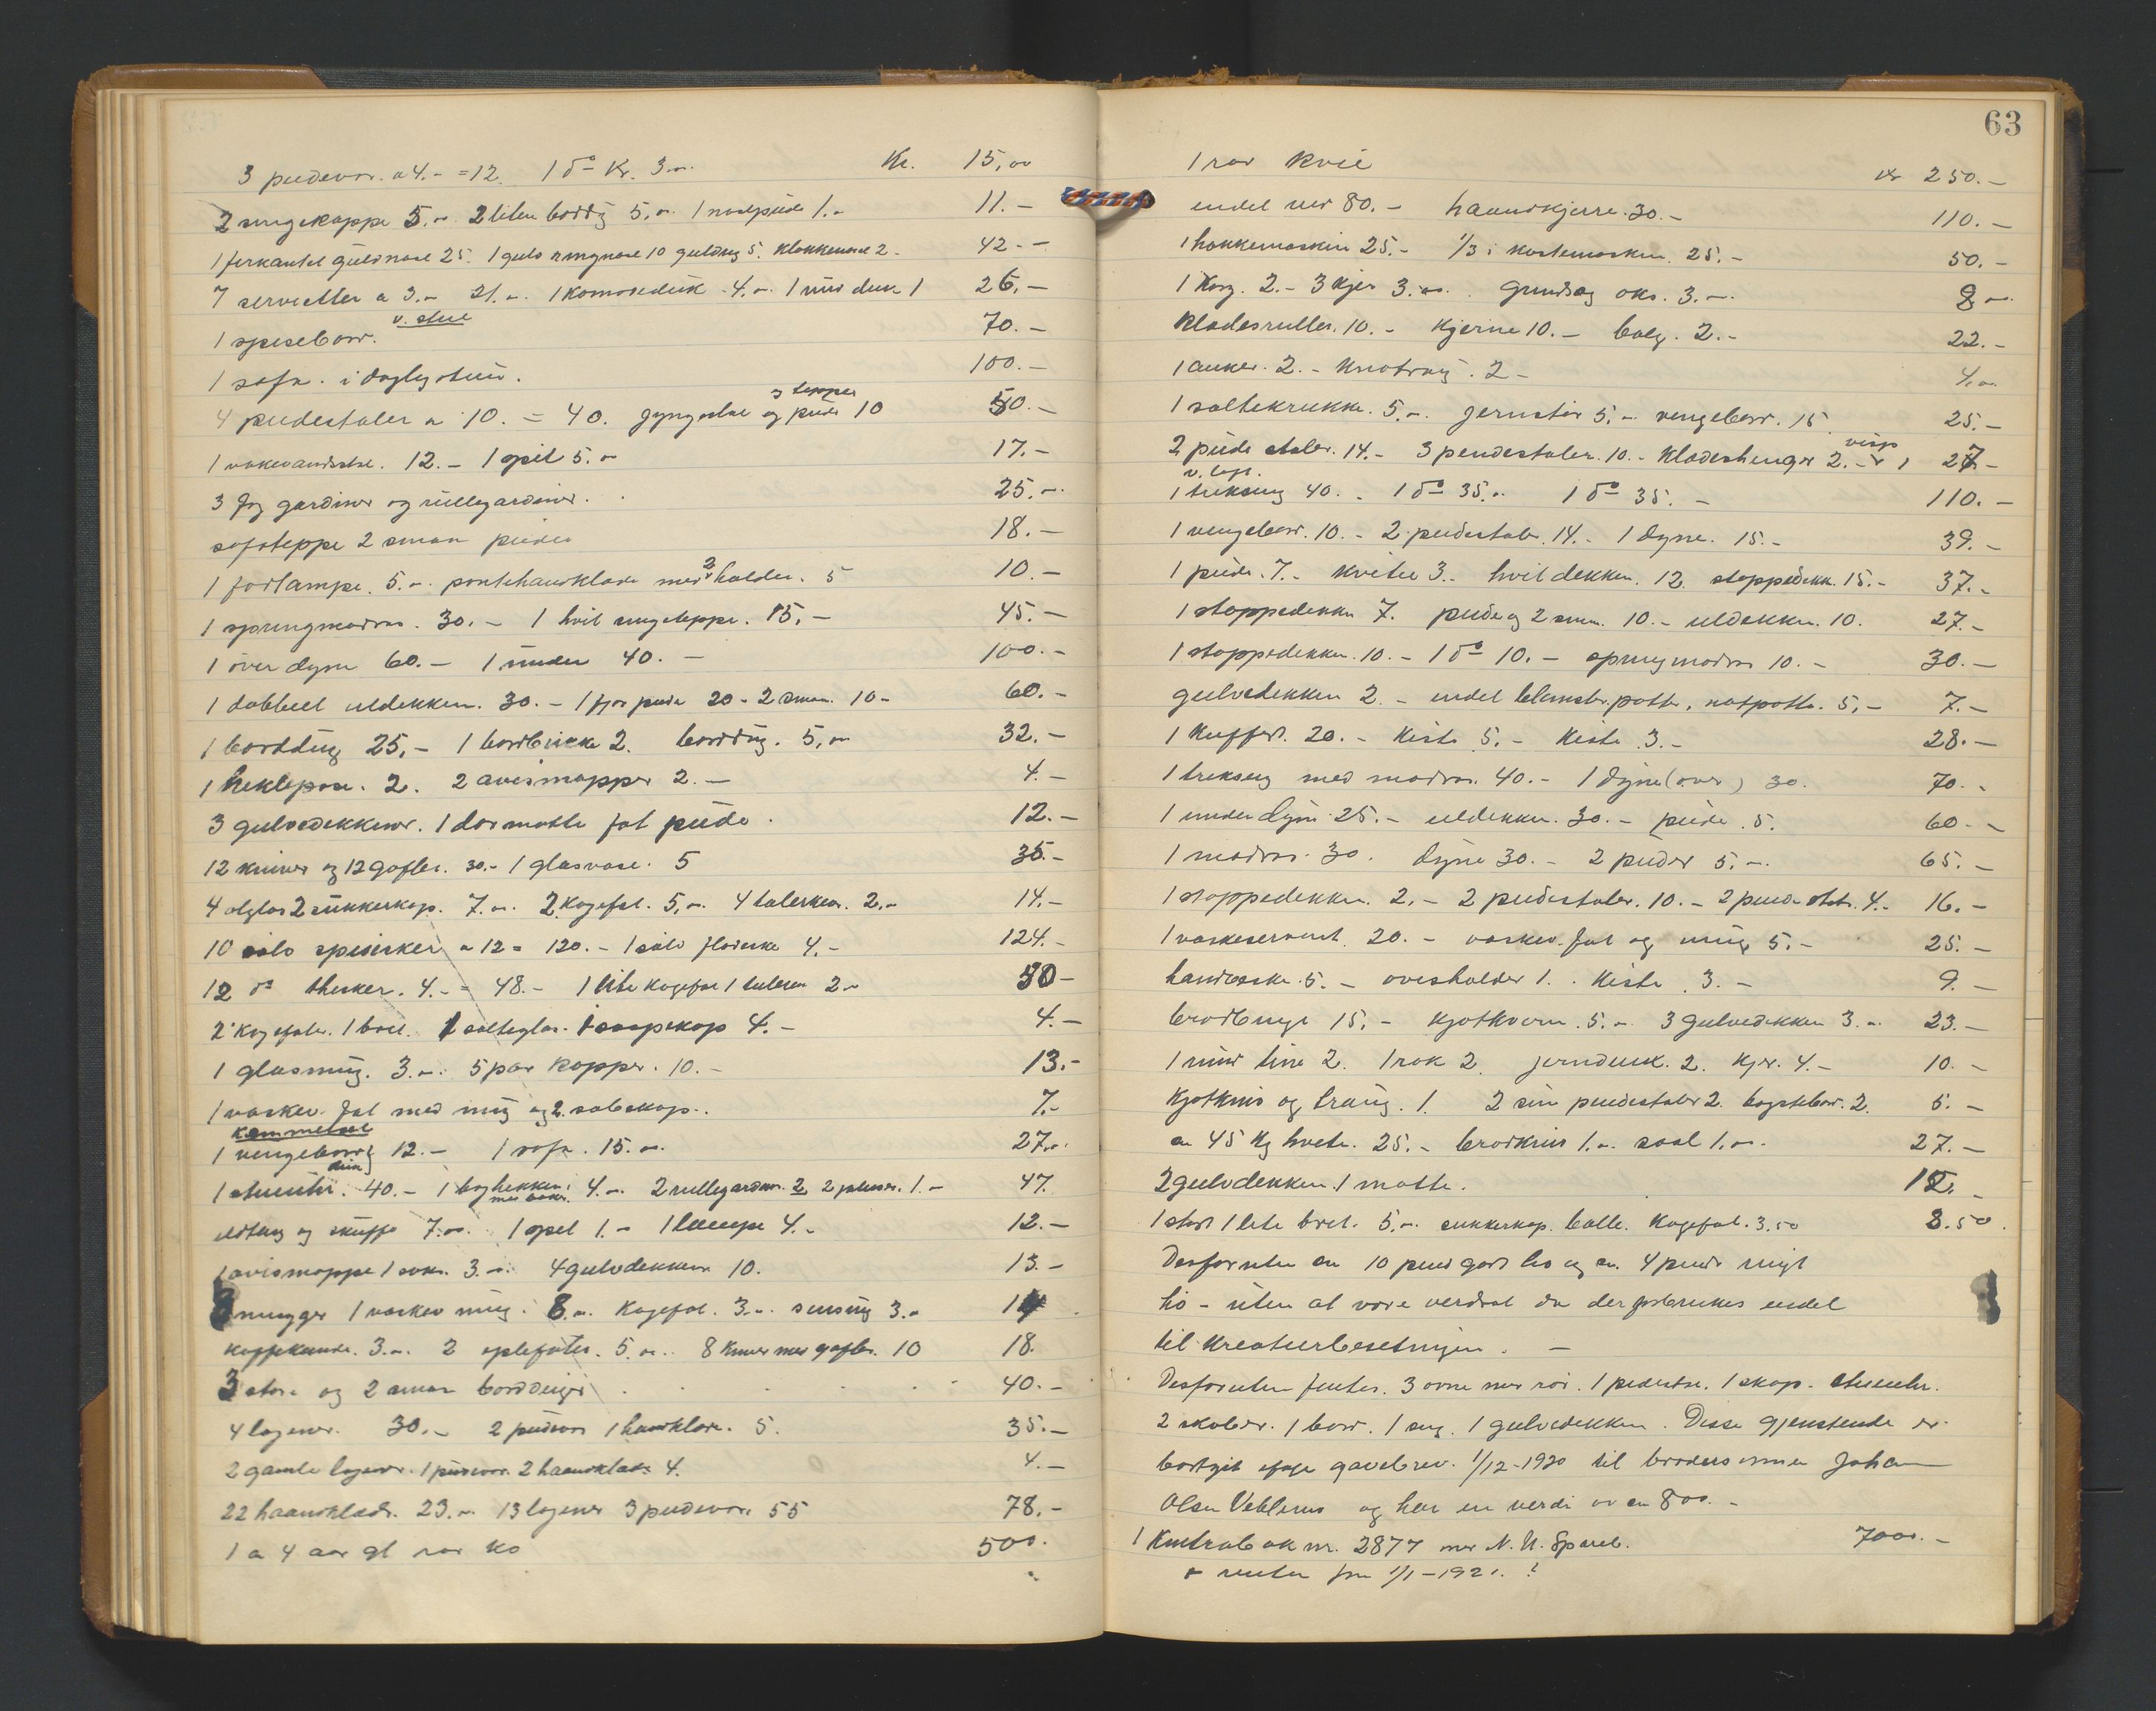 3 pudevar. a 4.- = 12. 1 do Kr. 3.- Kr. 15,00
2 sengekappe 5.- 2 liten bordtøi 5.- 1 naalpude 1.- 11.-
1 firkantet guldnaal 25. 1 guld ringnaal 10 guldring 5. klokkenaal 2.- 42.-
7 servietter a 3.- 21.- 1 komodeduk 4.- 1 rund duk 1 26.-
v. stue
1 spisebord. 70.-
1 sofa. i dagligstuen. 100.-
4 pudestoler a 10. = 40. gyngestol og pude 10 50.-
og tepper
1 vaskevandstol. 12.- 1 speil 5.- 17.-
3 fag gardiner og rullegardiner. 25.-
sofateppe 2 smaa puder 18.-
1 bordlampe. 5.- pontehaandklæde med 2 holder. 5 10.-
1 springmadras. 30.- 1 hvit sengeteppe. 15.- 45.-
1 over dyne 60.- 1 under 40.- 100.-
1 dobbelt uldekken. 30.- 1 fjær pude 20 - 2 smaa. 10- 60.-
1 borddug 25,- 1 bordbrikke 2. borddug. 5,00 32.-
1 heklepose. 2. 2 avismapper 2.- 4.-
3 gulvdekkener. 1 dørmatte fot pude. 12.-
12 kniver og 12 gafler. 30.- 1 glasvase. 5 35.-
4 ølglas 2 sukkerkop. 7.- 2 kagefat. 5,- 4 talerken. 2.- 14.-
10 sølv spiseskeer a 12 = 120.- 1 sølv fløteske 4.- 124.-
12 do theskeer. 4.- = 48.- 1 lite kagefat 1 talerken 2- 50-
2 kagefater. 1 bret. 1 salteglas. 1 saapekop 4.- 4.-
1 glasmug. 3.- 5 par kopper. 10.- 13.-
1 vaskev. fat med mug og 2 sæbekop.. 7.-
kammerset
1 vengebord 12.- 1 sofa. 15.- 27.-
1 stueuhr. 40.- 1 boghekken 4.- 2 rullegardin. 2 2 1.- 47.
med bøker
ildtang og skuffe 7.- 1 speil 1.- 1 lampe 4.- 12.-
1 avismappe 1 3.- 4 gulvdekkener 10. 13.-
3 mugger 1 vaskev mug. 8.- Kagefat. 3.- 3.- 14
kaffekande. 3.- 2 eplefater. 5.- 8 kniver med gafler. 10 18.
3 store og 2 smaa borddúger 40.-
4 lagener. 30.- 2 pudevar 1 haandklæde. 5. 35.-
2 gamle lagener. 1 pudevar. 2 haandklæde 4. 4.-
22 haandklæde. 23.- 13 lagener 3 pudevar. 55 78.-
1 a 4 aar gl rød ko 500.
63
1 rød kvie kr 250.-
endel ved 80.- haandkjerre. 30.- 110.-
1 hakkemaskin 25.- 1/3 i kastemaskin. 25.- 50.-
1 Korg. 2.- 3 kjer 3.- grindsag øks. 3.- 8.-
Klædesrulle. 10.- Kjerne 10.- balg. 2.- 22.-
1 anker. 2.- 2- 4,00
1 saltekrukke. 5.- jernstør 5.- vengebord. 15 25.-
2 pude stoler. 14.- 3 pendestoler. 10.- klædeshenger 2.- 1 27-
visp
v. loft.
1 trekseng 40.- 1 do 35.- 1 do 35.- 110.-
1 vengebord. 10.- 2 pudestoler. 14.- 1 dyne. 15.- 39.-
1 pude. 7.- kvitel 3.- hvit dekken. 12. stoppedekk. 15.- 37.-
1 stoppedekken 7. pude og 2 smaa. 10.- uldekken. 10. 27.-
1 stoppedekken. 10.- 1 do 10.- springmadras 10.- 30.-
gulvdekken 2.- endel blomster.potter, natpotte. 5,- 7.-
1 kuffert. 20.- kiste 5.- kiste 3.- 28.-
1 trekseng med madras. 40.- 1 dyne (over) 30. 70.-
1 under dyne 25.- uldekken. 30.- pude. 5. 60.-
1 madras. 30. dyne 30.- 2 puder 5.- 65.-
1 stoppedekken. 2.- 2 pudestoler. 10.- 2 pinde stole. 4.- 16.-
1 vaskeservant. 20.- vaskev. fat og mug 5.- 25.-
handveske. 5.- avisholder 1.- kiste. 3.- 9.-
brødbinge 15,- kjøtkvern. 5.- 3 gulvdekken 3.- 23.-
1 rund tine 2. 1 rok 2. 2. kjer. 4.- 10.-
kjøtkniv og traug. 1. 2 pudestoler 2. bakstebord. 2. 5.-
ca 45 kg hvete. 25.- brødkniv 1.- saal 1.- 27.-
2 gulvdekken. 1 matte. 12.-
1 stort 1 lite bret. 5.- sukkerkop. balle. Kagefat. 3.50 8.50
Desforuten ca 10 pund godt hø og ca. 4 pund ringt
hø - uten at være verdsat da det forbrukes endel
til kreaturbesetningen. -
Desforuten fintes. 3 ovne med rør. 1 pidestal. 1 skap. stueuhr.
2 skaber. 1 bord. 1 seng. 1 gulvdekken. Disse gjenstande er
bortgit ifølge gavebrev. 1/12-1920 til brodersønnen Johan
Olsen Veblerud og har en verdi av ca 800.-
1 Kontrabok nr. 2877 med N. U. Spareb. 7000.-
+ renter fra 1/1-1921. ?